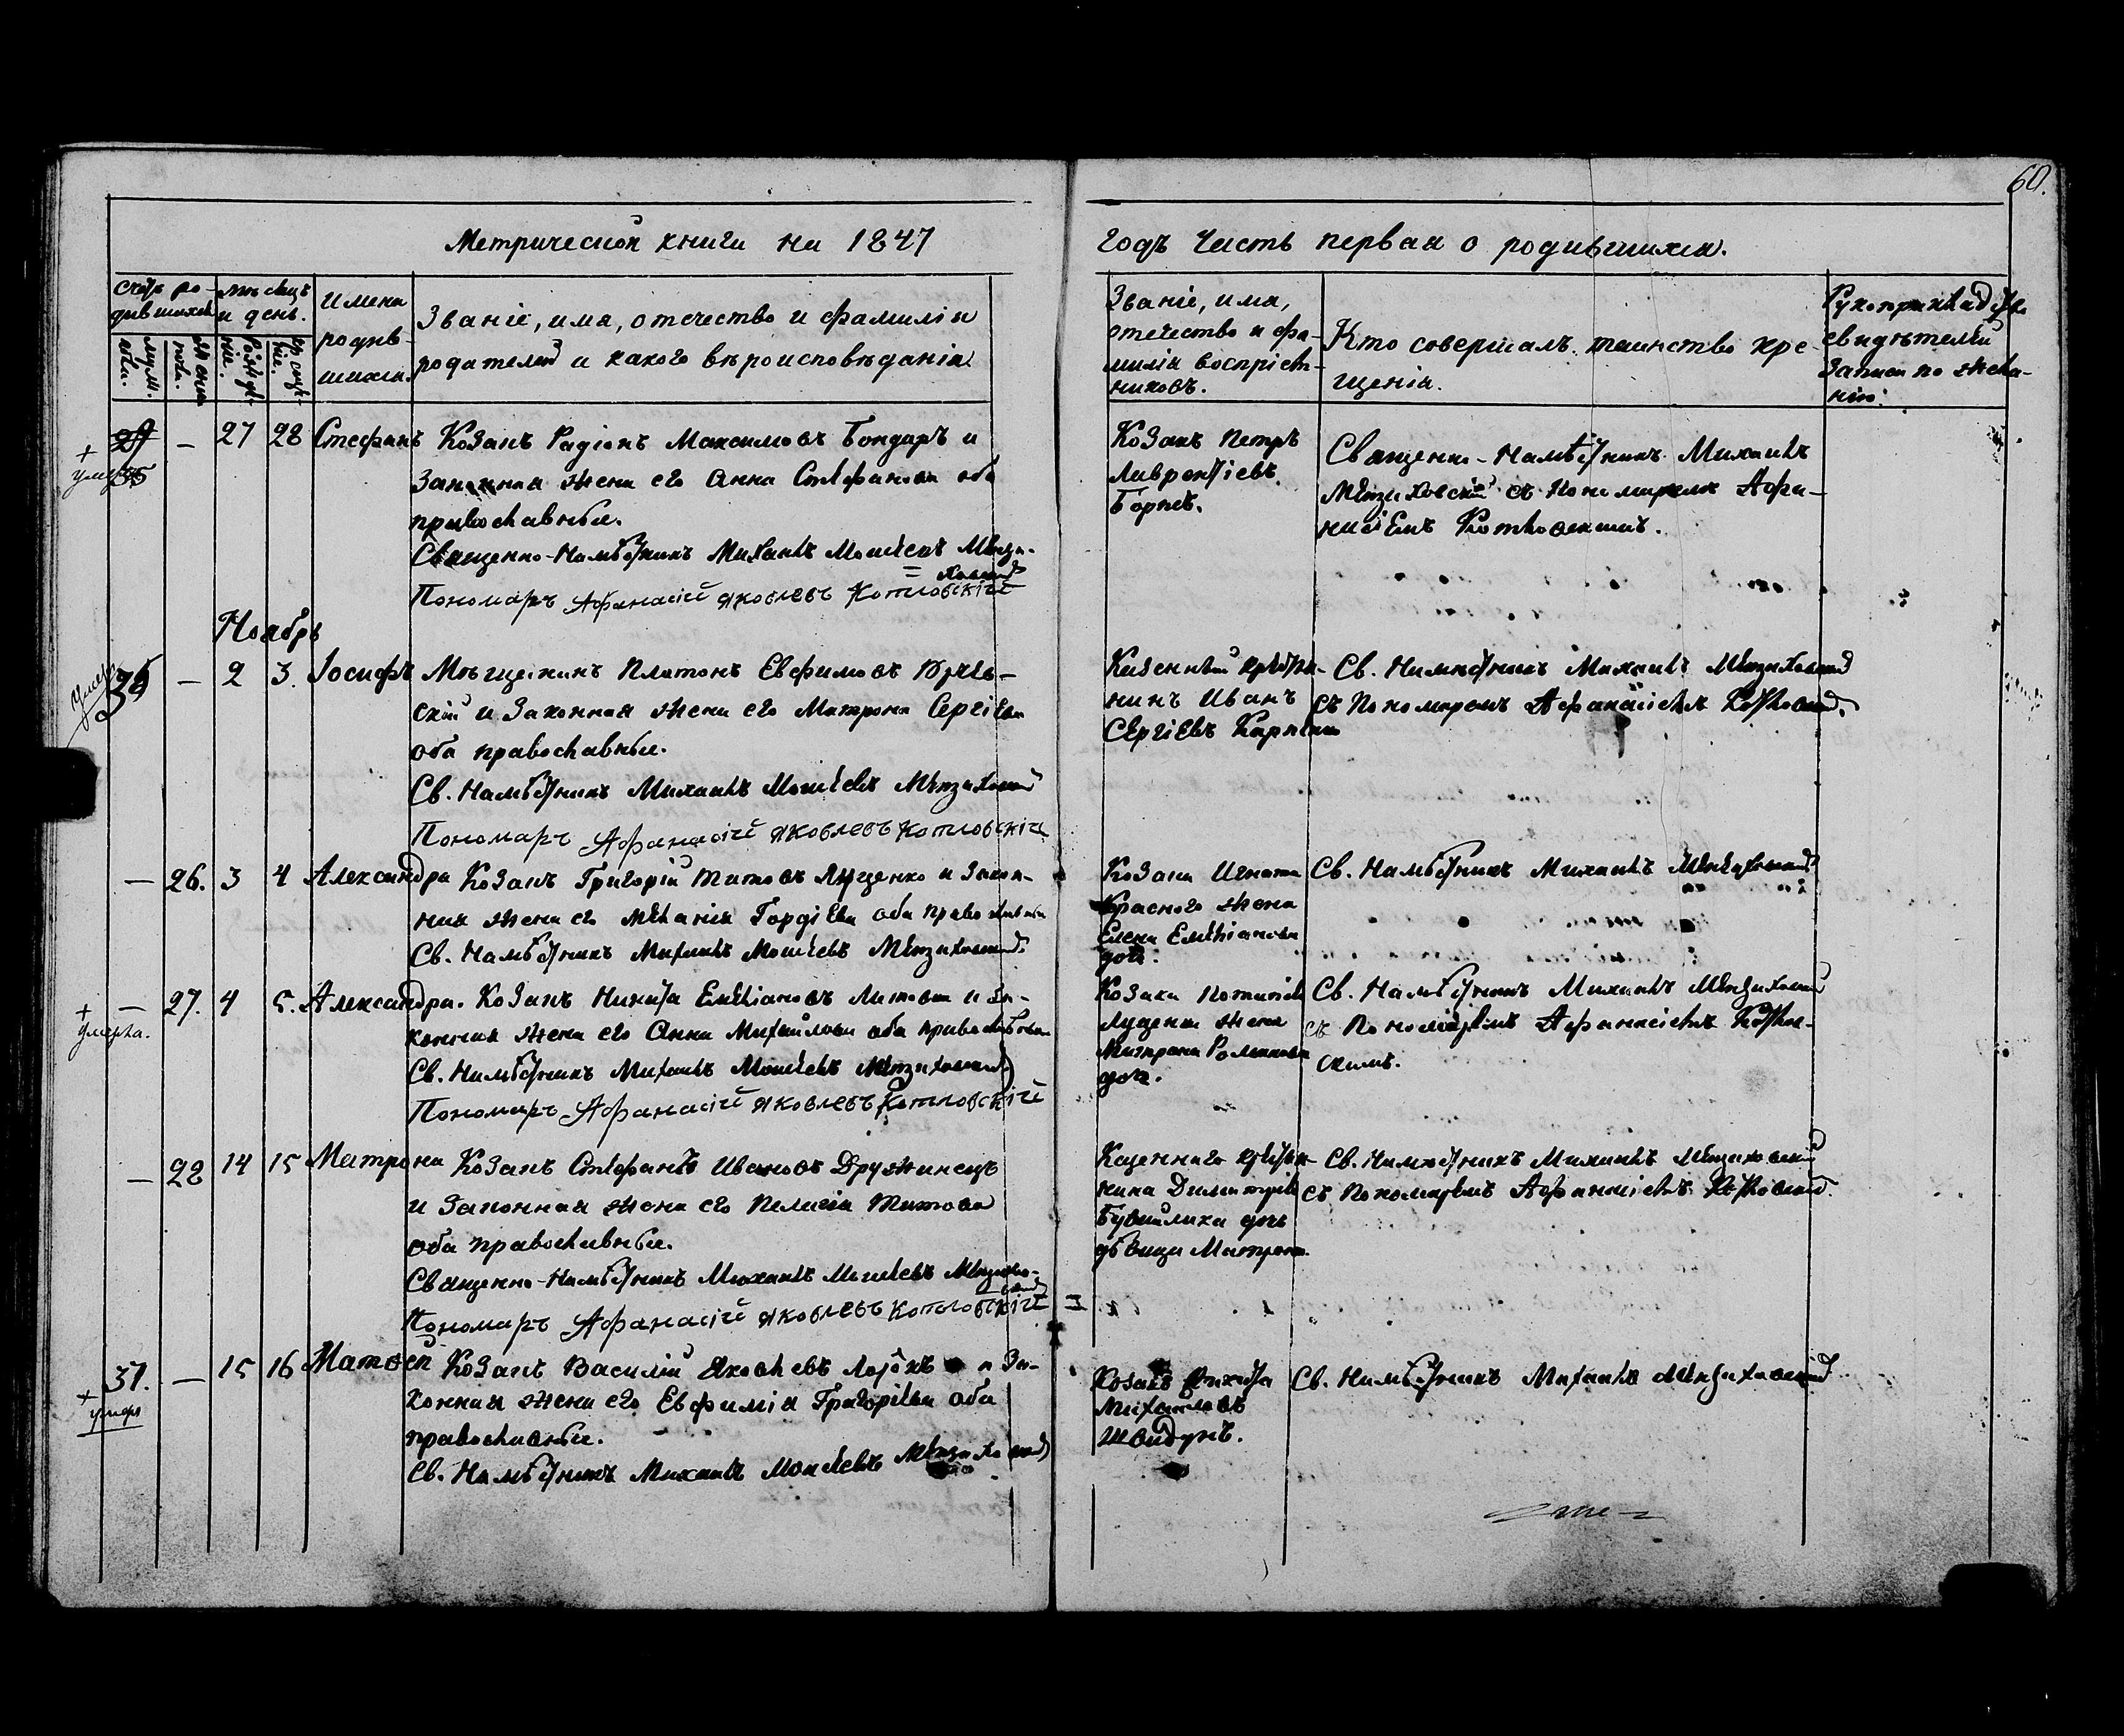 60.
Метрической книги на 1847
годъ Часть первая о родившихся.
Счетъ ро-
дившихся
мѣсяцъ
и день.
имена
родив-
шихся.
Званіе, имя, отчество и фамилія
родителей и какого вѣроисповѣданія
муж.
пола.
женск.
пола.
рожде-
ніе.
креще-
ніе.
Званіе, имя,
отечество и фа-
милія воспріем-
никовъ.
Кто совершалъ таинство кре-
щеніа.
Рукоприкладство
свидѣтелей
записи по жела-
нію.
+
умеръ
35
— 27 28 Стефанъ Козакъ Радіонъ Максимовъ Бондаръ и
Законная жена его Анна Стефанова оба
православные.
Священно-Намѣстникъ Михаилъ Моисеевъ
Пономаръ Афанасій Яковлевъ Котловскій
Козакъ Петръ
Лаврентіевъ
Священно-Намѣстникъ Михаилъ
съ Пономаремъ Афа-
насіемъ Котловскимъ.
Ноябрь
умеръ
36 — 2 3. Іосифъ Мѣщанинъ Платонъ Евфимовъ
скій и Законная жена его Матрона Сергіева
оба православные.
Св. Намѣстникъ Михаилъ Моисеевъ
Пономаръ Афанасій Яковлевъ Котловскій
Казенный крестья-
нинъ Иванъ
Сергіевъ
Св. Намѣстникъ Михаилъ
съ Пономаремъ Афанасіемъ
— 26. 3 4 Александра Козакъ Григорій Титовъ Ященко и Закон-
ная жена его Меланія Гордіева оба православные
Св. Намѣстникъ Михаилъ Моисеевъ
Козака Игната
Красного жена
Елена Емеліанова
дочь.
Св. Намѣстникъ Михаилъ
+
умерла.
— 27. 4 5. Александра. Козакъ Никита Емеліановъ и За-
конная жена его Анна Михайлова оба православные
Св. Намѣстникъ Михаилъ Моисеевъ
Пономаръ Афанасій Яковлевъ Котловскій
Козака
Луценка жена
Матрона Романова
дочь.
Св. Намѣстникъ Михаилъ
съ Пономаремъ Афанасіемъ Котлов-
скимъ.
— 28 14 15 Матрона Козакъ Стефанъ Ивановъ Дружинецъ
и Законная жена его Пелагія Титова
оба православные.
Священно-Намѣстникъ Михаилъ Моисеевъ
Пономаръ Афанасій Яковлевъ Котловскій
Казенного крестья-
нина Димитрія
дочь
дѣвица Матрона.
Св. Намѣстникъ Михаилъ
съ Пономаремъ Афанасіемъ
+
умеръ
37. — 15 16 Матвей Козакъ Василій Яковлевъ и За-
конная жена его Евфимія Григоріева оба
православные.
Св. Намѣстникъ Михаилъ Моисеевъ
Козакъ Никита
Михайловъ
Швидунъ.
Св. Намѣстникъ Михаилъ